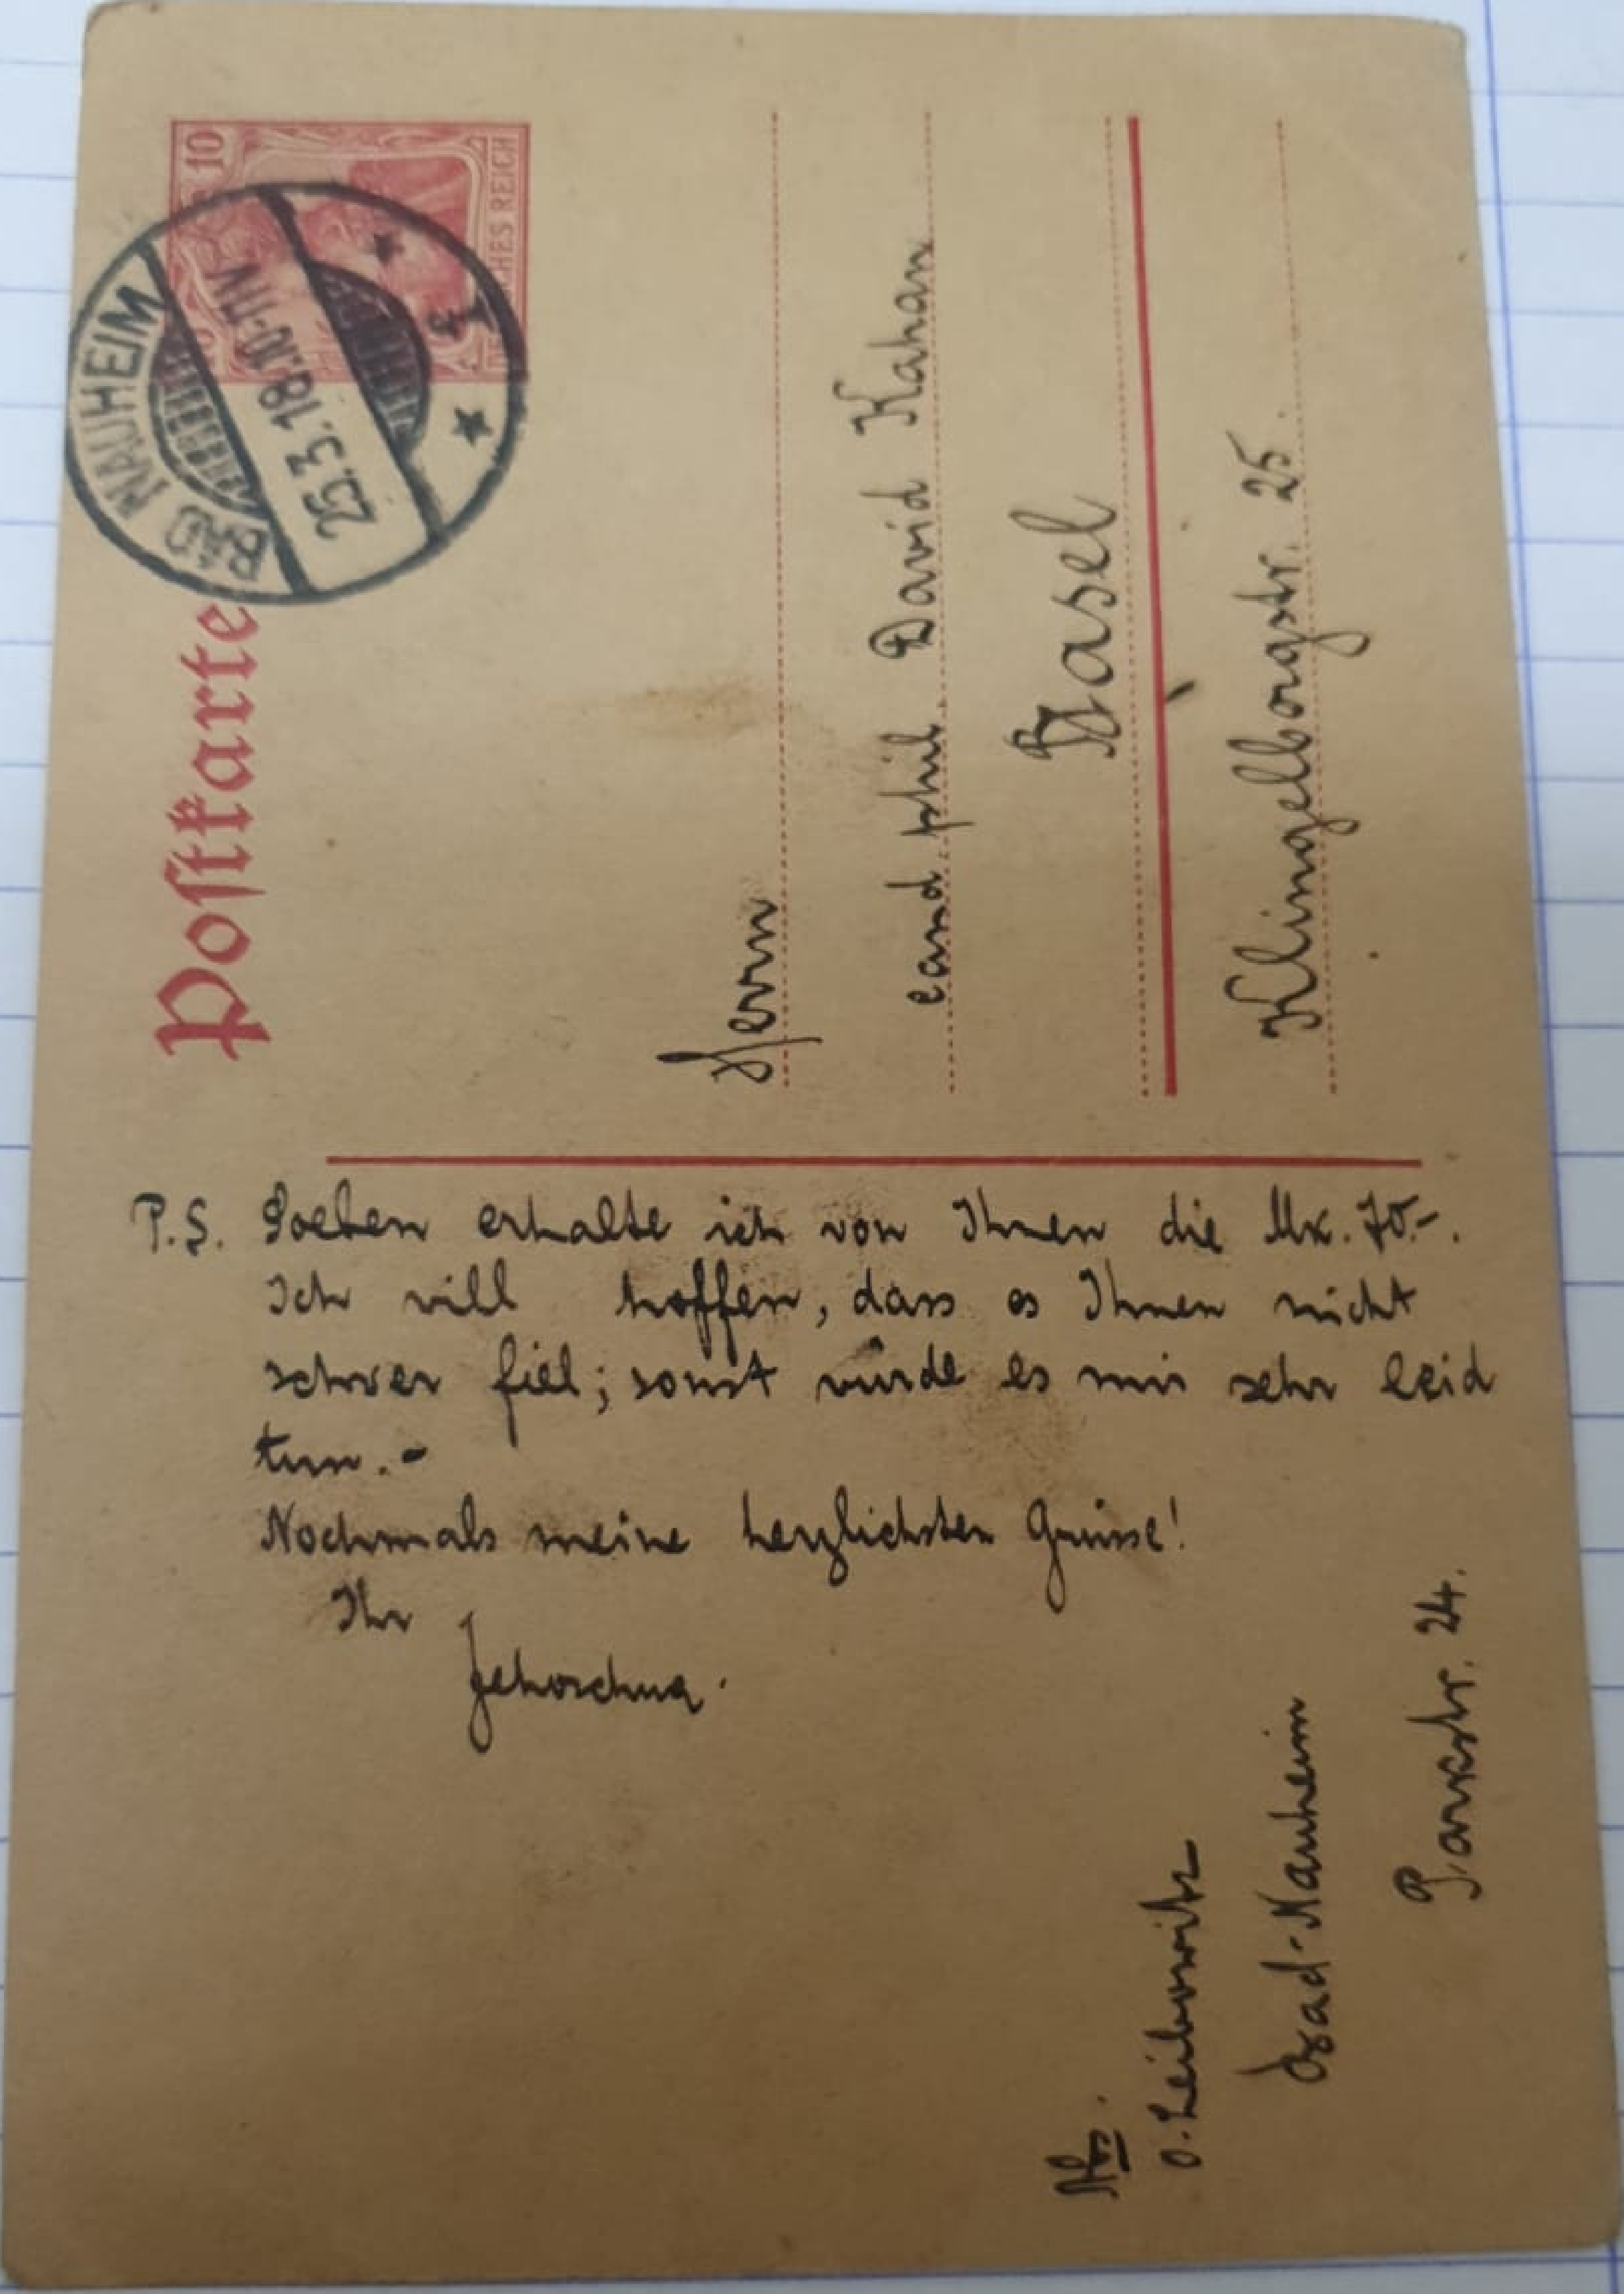 Postkarte
10
DEUTSCHES REICH
BAD NAUHEIM
25.3.18.10-11V
Herrn
cand. phil. David Kahan
Basel
Klingelbergstr. 25.
P.S. Soeben erhalte ich von Ihnen die Mk. 70.-.
Ich will hoffen, dass es Ihnen nicht
schwer fiel; sonst würde es mir sehr leid
tun. -
Nochmals meine herzlichsten Grüsse!
Ihr
Jehoschua.
Abs.
O. Leibowitz
Bad-Nauheim
Parkstr. 24.